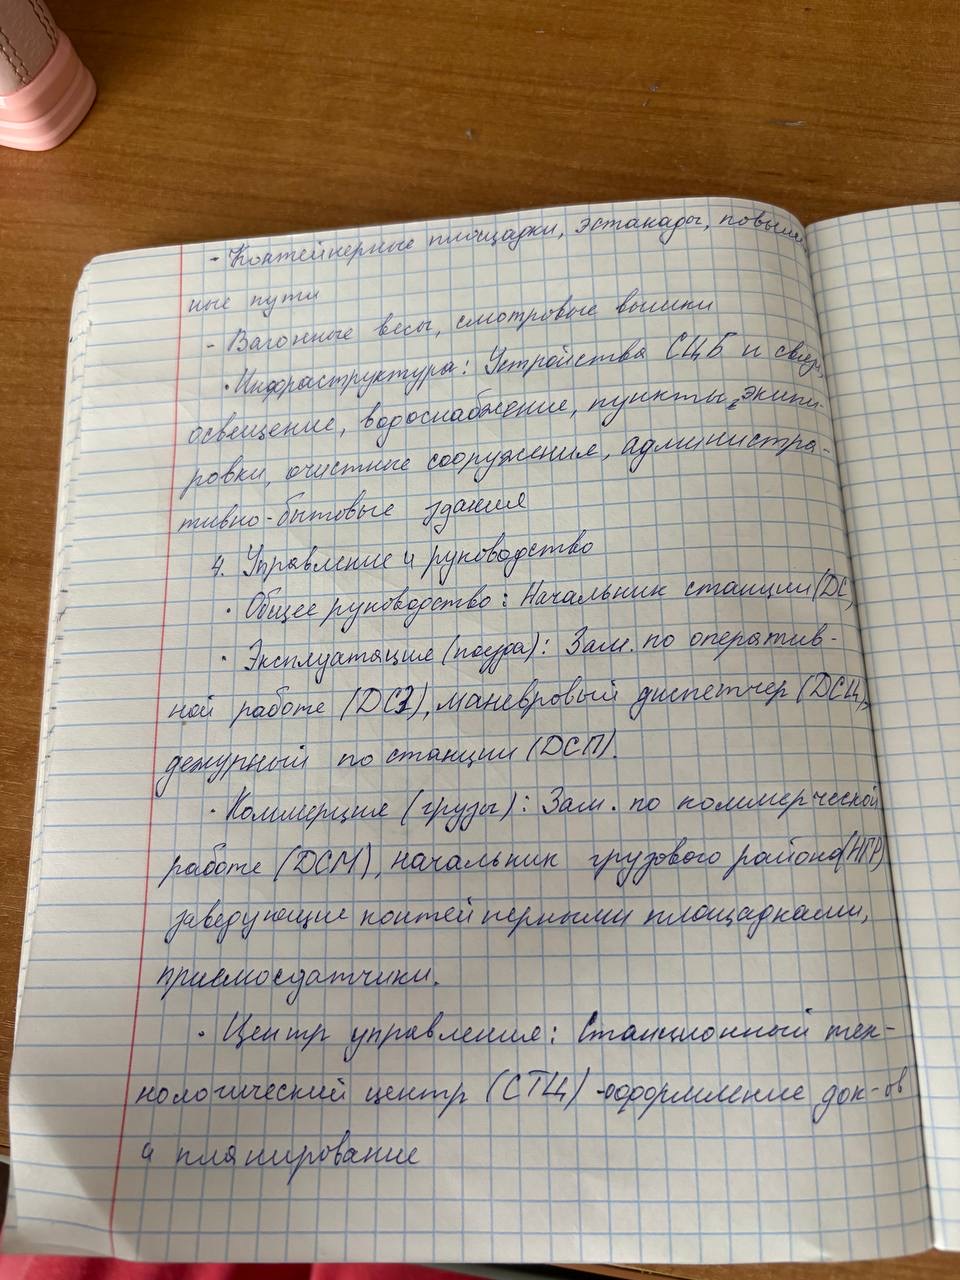 - Контейнерные площадки, эстакады, повыш
ные пути
- Вагонные весы, смотровые вышки
· Инфраструктура: Устройства СЦБ и связи,
освещение, водоснабжение, пункты экипи-
ровки, очистные сооружения, администра-
тивно-бытовые здания
4. Управление и руководство
· Общее руководство: Начальник станции (ДС,
· Эксплуатация (поезда): Зам. по оператив-
ной работе (ДСЗ), маневровый диспетчер (ДСЦ),
дежурный по станции (ДСП).
· Коммерция (грузы): Зам. по коммерческой
работе (ДСМ), начальник грузового района (НГР)
заведующие контейнерными площадками,
приемосдатчики.
· Центр управления: Станционный тех-
нологический центр (СТЦ) - оформление док-ов
и планирование